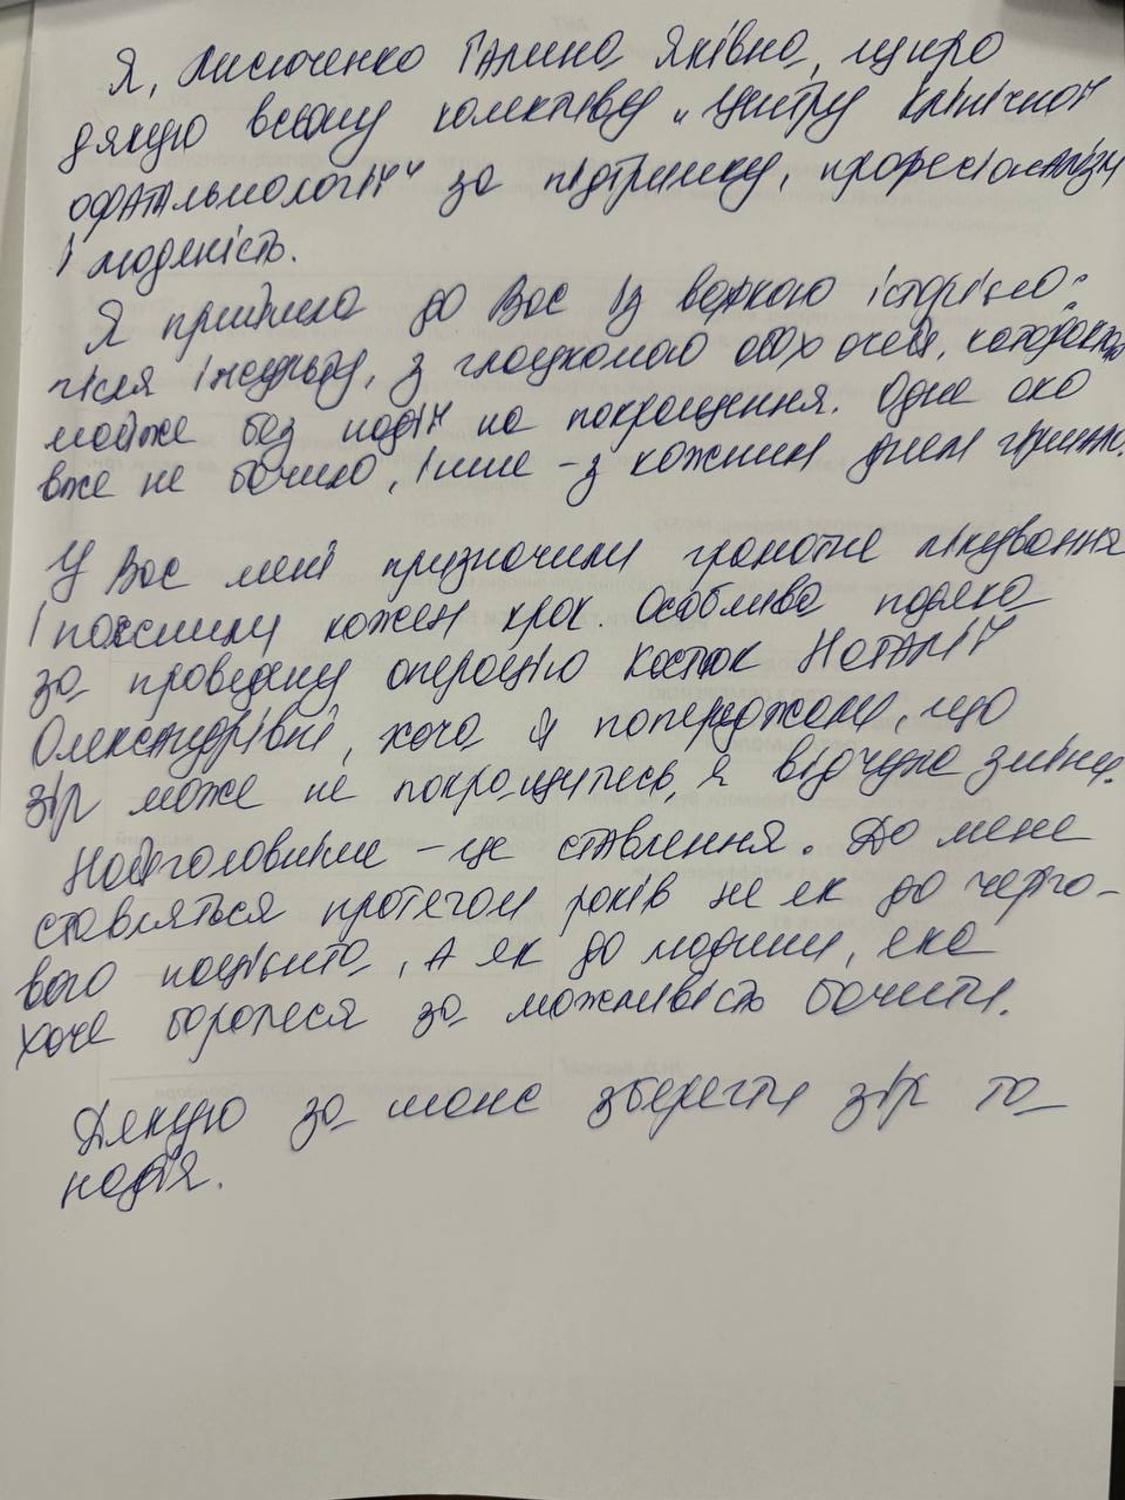 Я, Лисюченко Галина Яківна, щиро
дякую всьому колективу „Центру клінічної
офтальмології" за підтримку, професіоналізм
і людяність.
Я прийшла до Вас із важкою історією:
після інсульту, з глаукомою обох очей, катарактою
майже без надій на покращення. Одне око
вже не бачило, інше – з кожним днем гіршало.
У Вас мені призначили грамотне лікування
і пояснили кожен крок. Особлива подяка
за проведену операцію Костюк Наталії
Олександрівні, хоча й попереджали, що
зір може не покращитись, я відчула зміни.
Найголовніше – це ставлення. До мене
ставляться протягом років не як до черго-
вого пацієнта, а як до людини, яка
хоче боротися за можливість бачити.
Дякую за шанс зберегти зір та
надія.